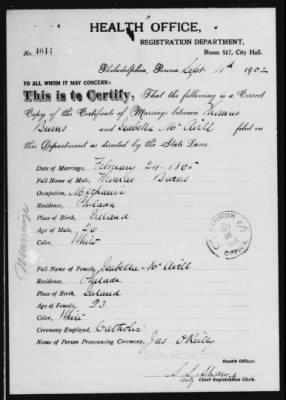 HEALTH OFFICE,
REGISTRATION DEPARTMENT,
No. 4044 Room 517, City Hall.
Philadelphia, Penna Sept 11th 1902
TO ALL WHOM IT MAY CONCERN:
This is to Certify, That the following is a Correct
Copy of the Certificate of Marriage between Thomas
Burns and Isabella McAvill filed in
this Department as directed by the State Laws.
Date of Marriage, February 24 - 1865
Full Name of Male, Thomas Burns
Occupation, Mechanic
Residence, Philada
Place of Birth, Ireland
Age of Male, 26
Color, White
PENSION
OFFICE
Marriage
Full Name of Female, Isabella McAvill
Residence, Philada
Place of Birth, Ireland
Age of Female, 23
Color, White
Ceremony Employed, Catholic
Name of Person Pronouncing Ceremony, Jas O'Reilly
Health Officer.
Chief Registration Clerk.